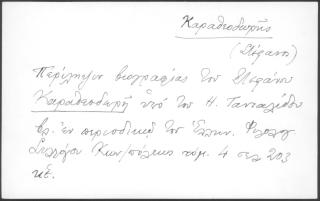 Καραθεοδωρῆς
(Στέφανος)
Περίληψις βιογραφίας τοῦ Στεφάνου
Καραθεοδωρῆ ὑπὸ τοῦ Η. Τανταλίδου
βλ. ἐν περιοδικῷ τοῦ Ἑλλην. Φιλολογ.
Συλλόγου Κων/πόλεως τόμ. 4 σελ 203
κἑ.